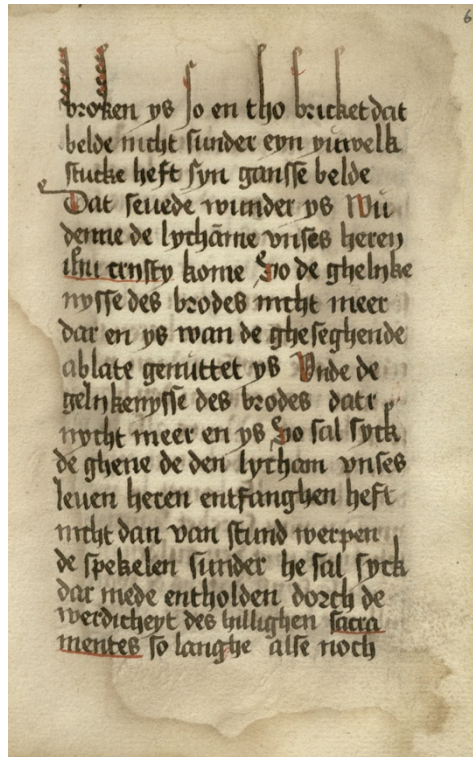 6
broken ys so en tho bricket dat
belde nicht sunder eyn yuwelk
stucke heft syn gansse belde
Dat seuede wunder ys Wu
denne de lychāme vnses heren
ihu crusty kome So de ghelyke
nysse des brodes nicht meer
dar en ys wan de gheseghende
ablate genuttet ys Vnde de
gelykenysse des brodes dar
nycht meer en ys So sal syck
de ghene de den lycham vnses
leuen heren entfanghen heft
nicht dan van stund werpen
de spekelen sunder he sal syck
dar mede entholden dorch de
werdicheyt des hillighen sacra
mentes so langhe alse noch